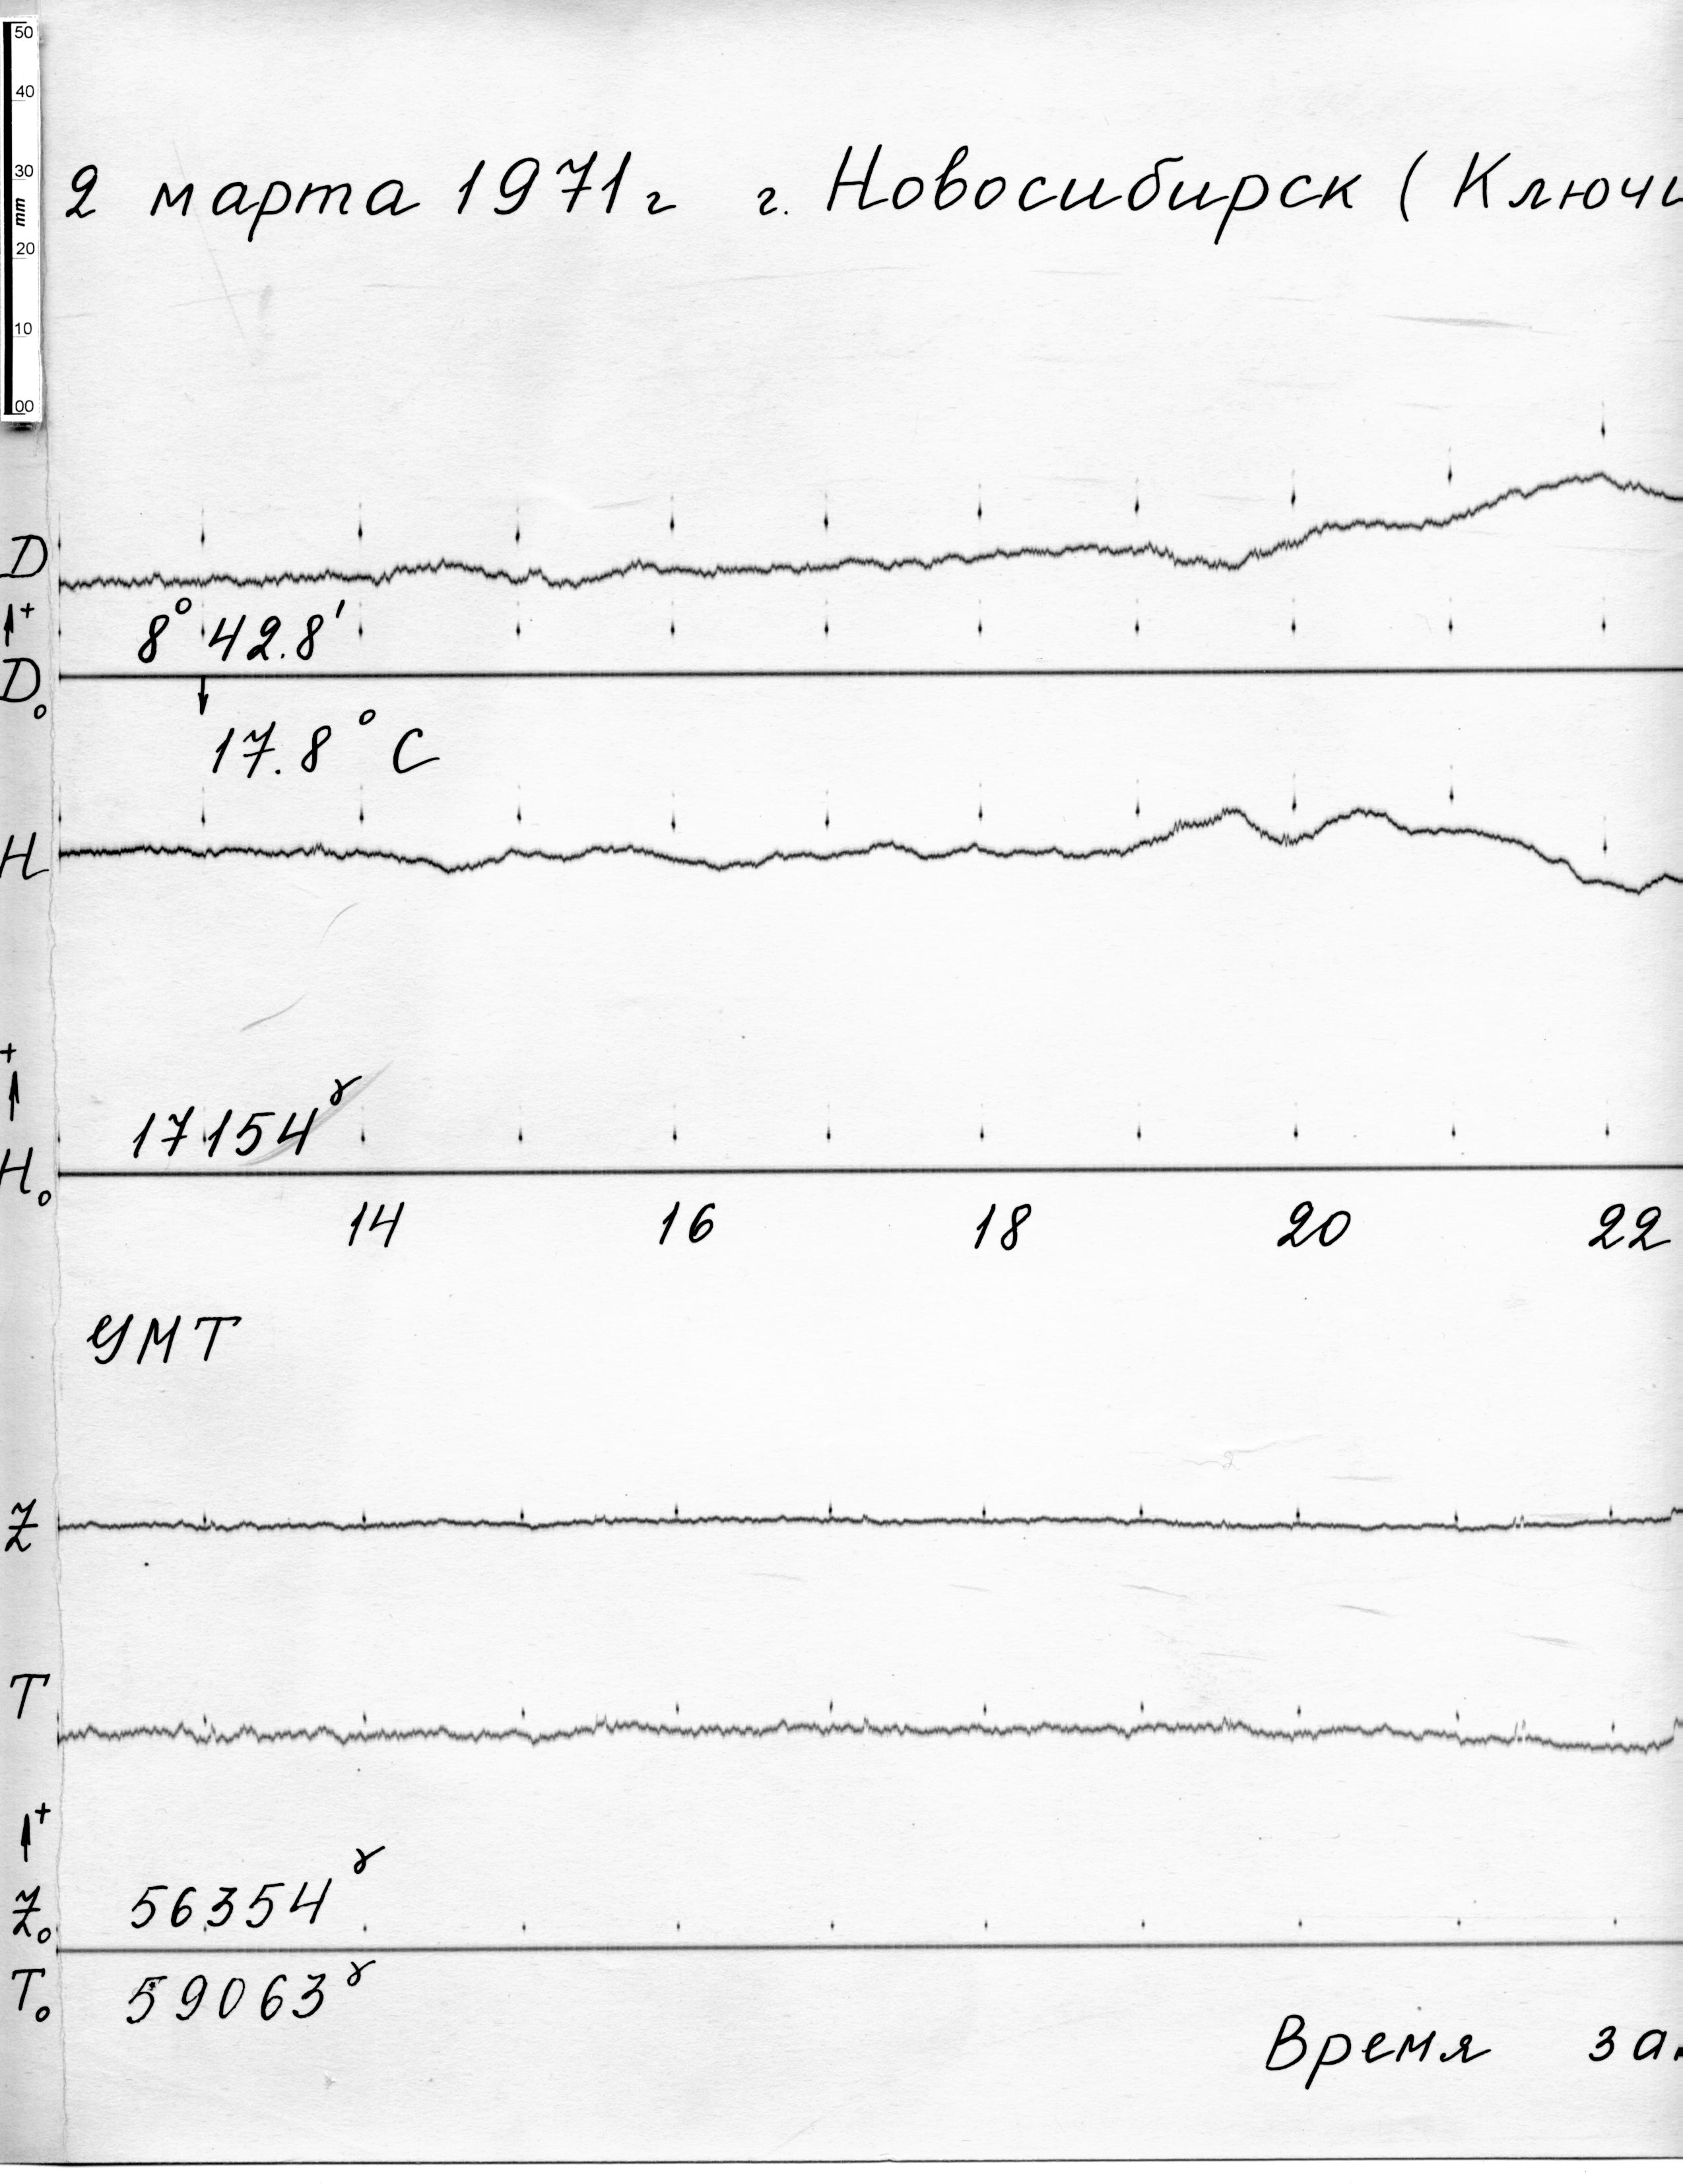 50
40
30
mm
20
10
00
2 марта 1971г г. Новосибирск (Ключи
D
+
8° 42.8'
D₀
17.8° C
H
+
17154γ
H₀
14 16 18 20 22
УМТ
Z
T
+
56354γ
Z₀
T₀ 59063γ
Время